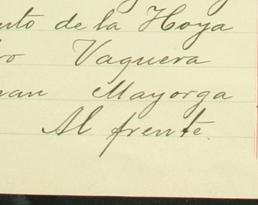 nto de la Hoya
ro Vaquera
uan Mayorga
Al frente.